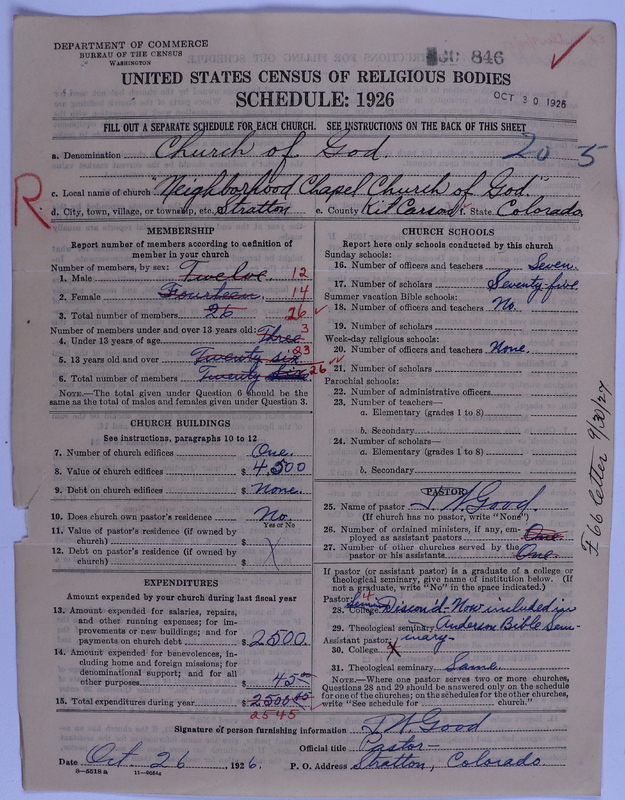 DEPARTMENT OF COMMERCE
BUREAU OF THE CENSUS
WASHINGTON
846
UNITED STATES CENSUS OF RELIGIOUS BODIES
SCHEDULE: 1926
OCT 30 1926
FILL OUT A SEPARATE SCHEDULE FOR EACH CHURCH. SEE INSTRUCTIONS ON THE BACK OF THIS SHEET
a. Denomination Church of God.
20 5
c. Local name of church "Neighborhood Chapel Church of God"
R
d. City, town, village, or township, etc. Stratton e. County Kit Carson f. State Colorado
MEMBERSHIP
Report number of members according to definition of member in your church
Number of members, by sex:
1. Male Twelve. 12
2. Female Fourteen. 14
3. Total number of members 26 26
Number of members under and over 13 years old:
4. Under 13 years of age Three 3
5. 13 years old and over Twenty six 23
6. Total number of members Twenty six 26
NOTE.—The total given under Question 6 should be
the same as the total of males and females given under Question 3.
CHURCH BUILDINGS
See instructions, paragraphs 10 to 12
7. Number of church edifices One.
8. Value of church edifices $ 4500
9. Debt on church edifices $ None.
10. Does church own pastor's residence No
Yes or No
11. Value of pastor's residence (if owned by
church) $
12. Debt on pastor's residence (if owned by
church) $
EXPENDITURES
Amount expended by your church during last fiscal year
13. Amount expended for salaries, repairs,
and other running expenses; for im-
provements or new buildings; and for
payments on church debt $ 2500.
14. Amount expended for benevolences, in-
cluding home and foreign missions; for
denominational support; and for all
other purposes $ 45
15. Total expenditures during year $ 2500
2545
CHURCH SCHOOLS
Report here only schools conducted by this church
Sunday schools:
16. Number of officers and teachers Seven.
17. Number of scholars Seventy five
Summer vacation Bible schools:
18. Number of officers and teachers No.
19. Number of scholars
Week-day religious schools:
20. Number of officers and teachers None.
21. Number of scholars
Parochial schools:
22. Number of administrative officers
23. Number of teachers—
a. Elementary (grades 1 to 8)
b. Secondary
24. Number of scholars—
a. Elementary (grades 1 to 8)
b. Secondary
PASTOR
25. Name of pastor T. W. Good.
(If church has no pastor, write "None")
26. Number of ordained ministers, if any, em-
ployed as assistant pastors One.
27. Number of other churches served by the
pastor or his assistants One.
If pastor (or assistant pastor) is a graduate of a college or
theological seminary, give name of institution below. (If
not a graduate, write "No" in the space indicated.)
Pastor:
28. College Discond-Now included in
29. Theological seminary Anderson Bible Sem-
Assistant pastor: inary-
30. College
31. Theological seminary Same.
NOTE.—Where one pastor serves two or more churches,
Questions 28 and 29 should be answered only on the schedule
for one of the churches; on the schedules for the other churches,
write "See schedule for church."
F 66 letter 9/30/27
Signature of person furnishing information T. W. Good
Official title Pastor—
Date Oct 26, 1926. P. O. Address Stratton, Colorado
8—5518 a